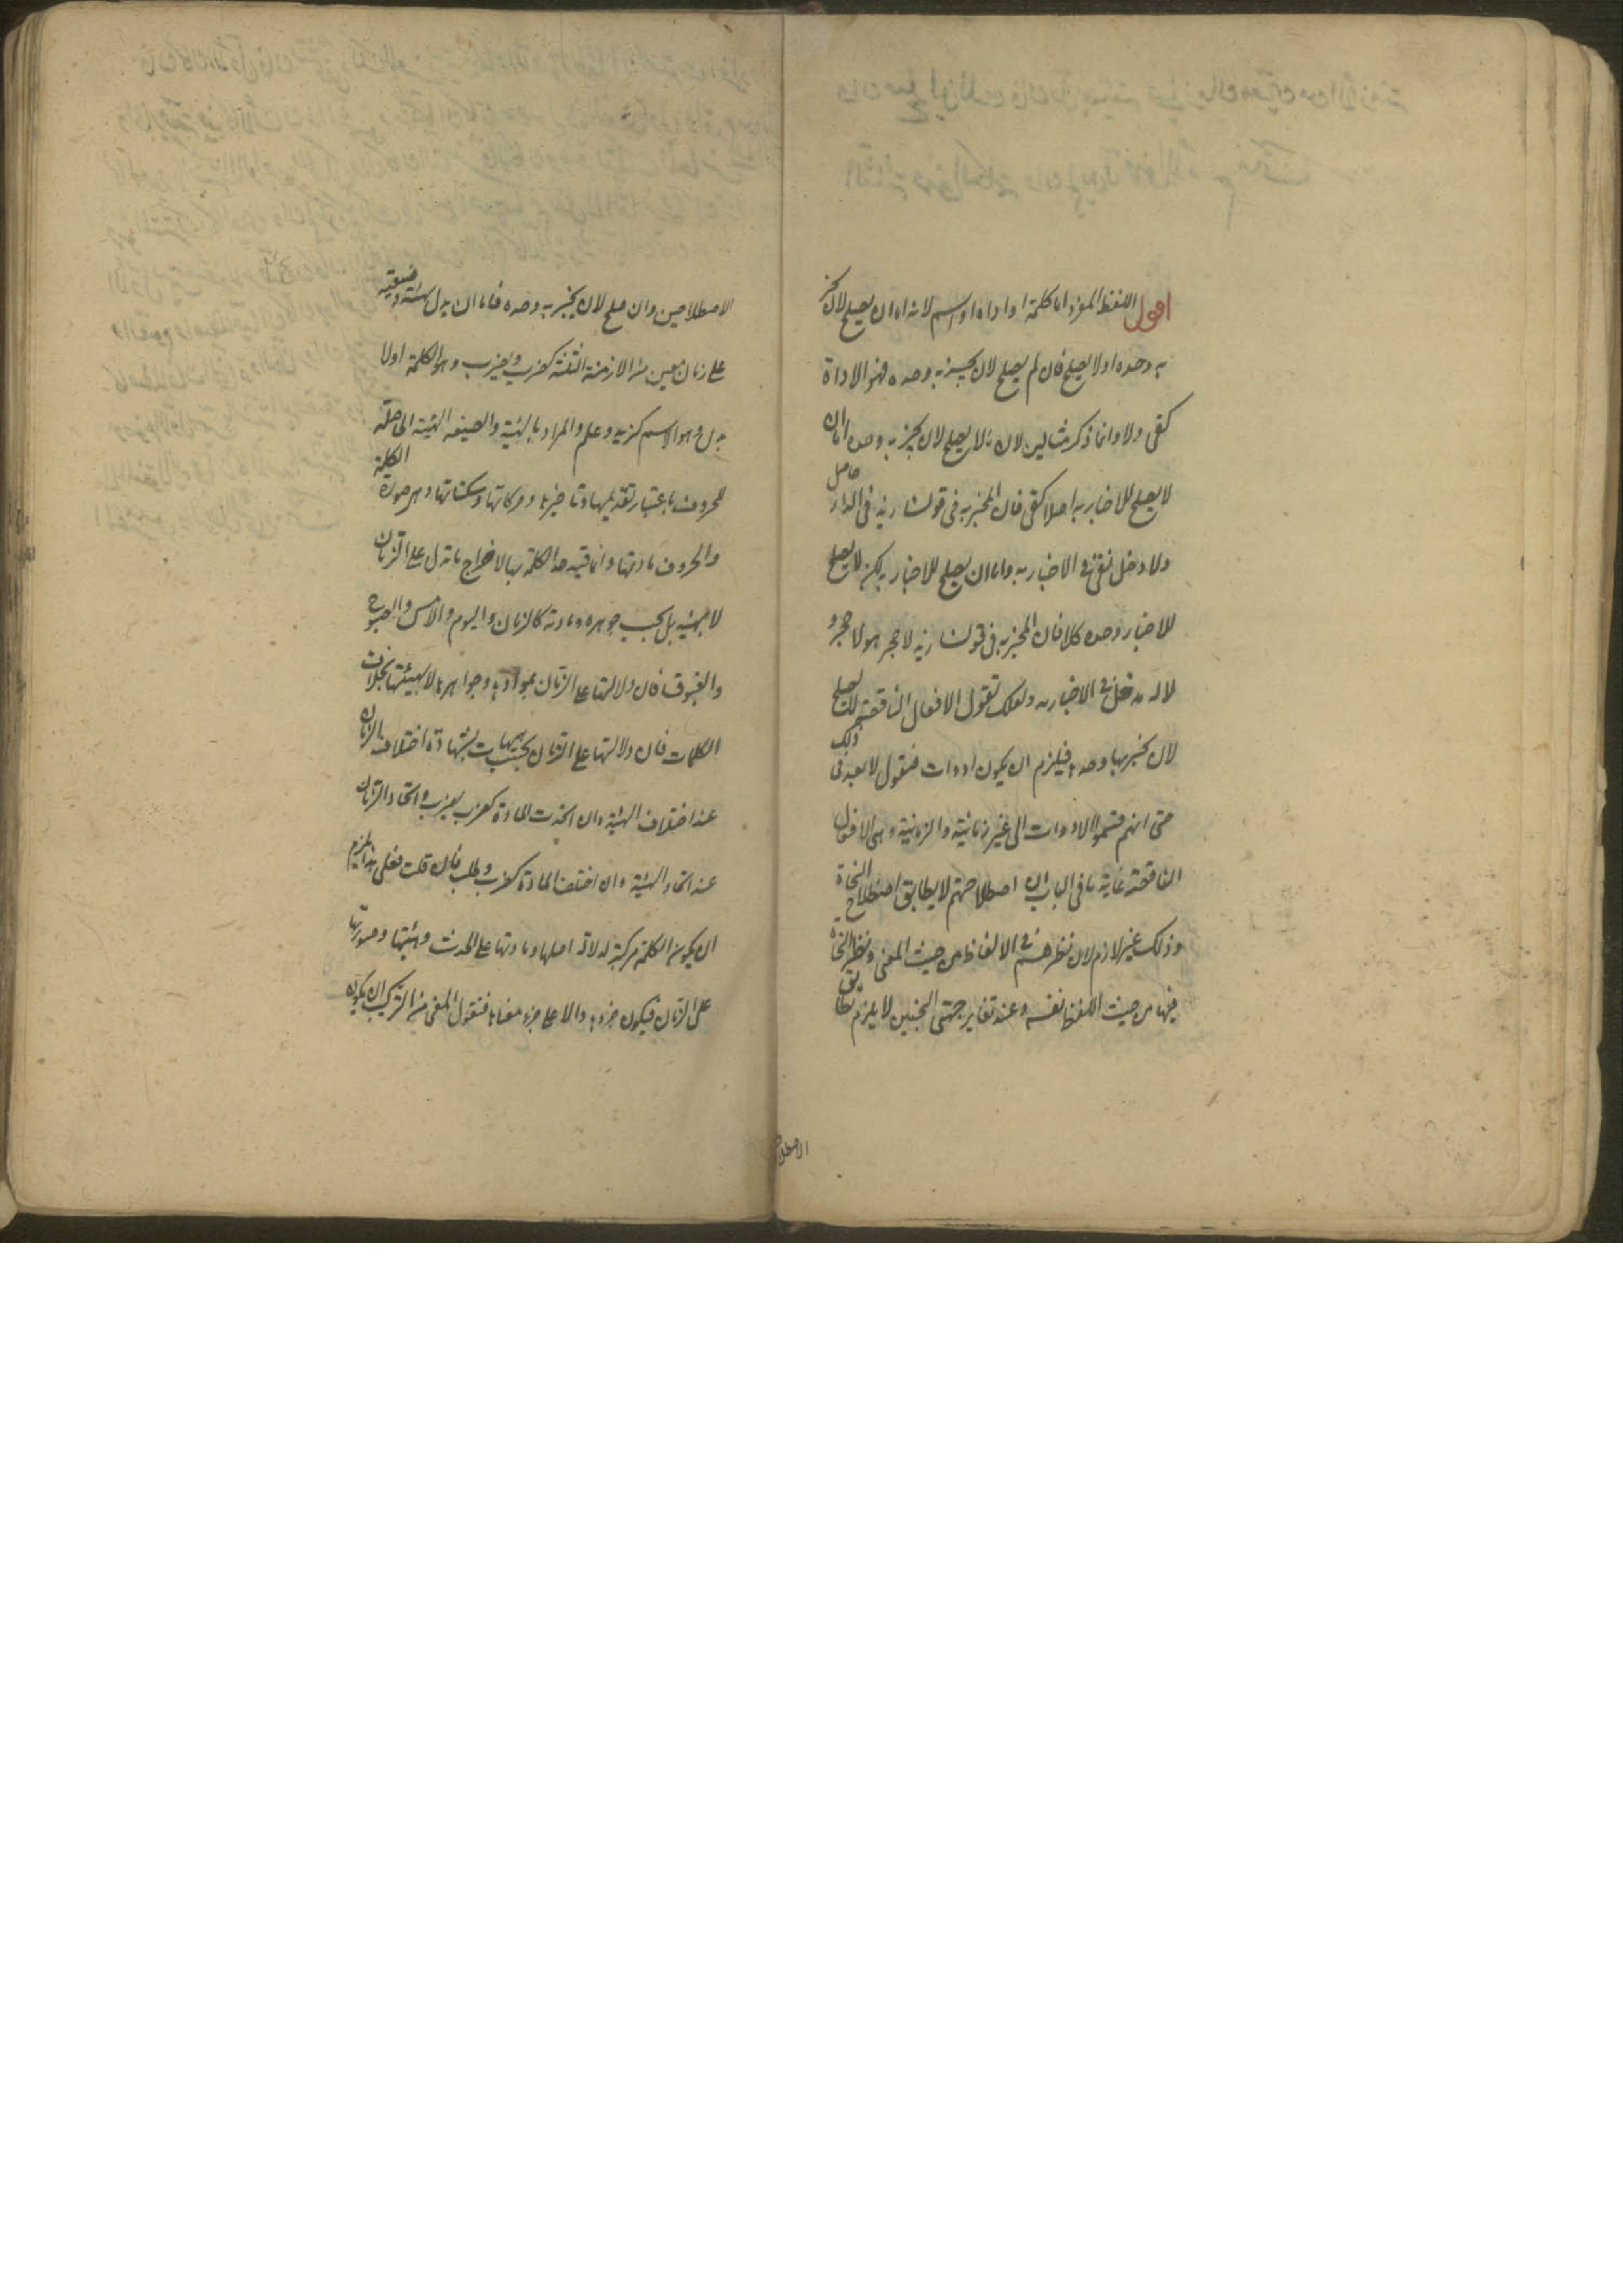 اقول اللفظ المفرد اما كلمة او اداة او اسم لانه اما ان يصلح لان يخبر
به وحده او لا يصلح فان لم يصلح لان يخبر به وحده فهو الاداة
كفى ولا وانما ذكر مثالين لان ما لا يصلح لان يخبر به وحده اما ان
لا يصلح للاخبار به اصلا كفى فان المخبر به فى قولنا زيد فى الدار حاصل
ولا دخل لفى فى الاخبار به واما ان يصلح للاخبار به لكن لا يصلح
للاخبار وحده كلا فان المخبر به فى قولنا زيد لا حجر هو لا حجر و
لا له مدخل فى الاخبار به ولعلك تقول الافعال الناقصة لا يصلح
لان يخبر بها وحدها فيلزم ان يكون ادوات فنقول لا بعد فى ذلك
حتى انهم قسموا الادوات الى غير زمانية والزمانية وهى الافعال
الناقصة غاية ما فى الباب ان اصطلاحهم لا يطابق اصطلاح النحاة
وذلك غير لازم لان نظرهم فى الالفاظ من حيث المعنى ونظر النحاة
فيها من حيث اللفظ نفسه وعند تغاير جهتى البحثين لا يلزم تطابق
الاصطلا
الاصطلاحين وان صلح لان يخبر به وحده فاما ان يدل بهيئته وصيغته
على زمان معين من الازمنة الثلثة كضرب ويضرب وهو الكلمة او لا
يدل وهو الاسم كزيد وعلم والمراد بالهيئة والصيغة الهيئة الحاصلة
للحروف باعتبار تقديمها وتاخيرها وحركاتها وسكناتها وهى صورة الكلمة
والحروف مادتها وانما قيد حد الكلمة بها لاخراج ما يدل على الزمان
لا بهيئته بل بحسب جوهره ومادته كالزمان واليوم والامس والصبوح
والغبوق فان دلالتها على الزمان بموادها وجواهرها لا بهيئتها بخلاف
الكلمات فان دلالتها على الزمان بحسب هيهات بشهادة اختلاف الزمان
عند اختلاف الهيئة وان اتحدت المادة كضرب يضرب واتحاد الزمان
عند اتحاد الهيئة وان اختلف المادة كضرب وطلب فان قلت فعلى هذا يلزم
ان يكون الكلمة مركبة لدلالة اصلها ومادتها على الحدث وهيئتها وصورتها
على الزمان فيكون جزءها دالا على جزء معناها فنقول المعنى من التركيب ان يكون